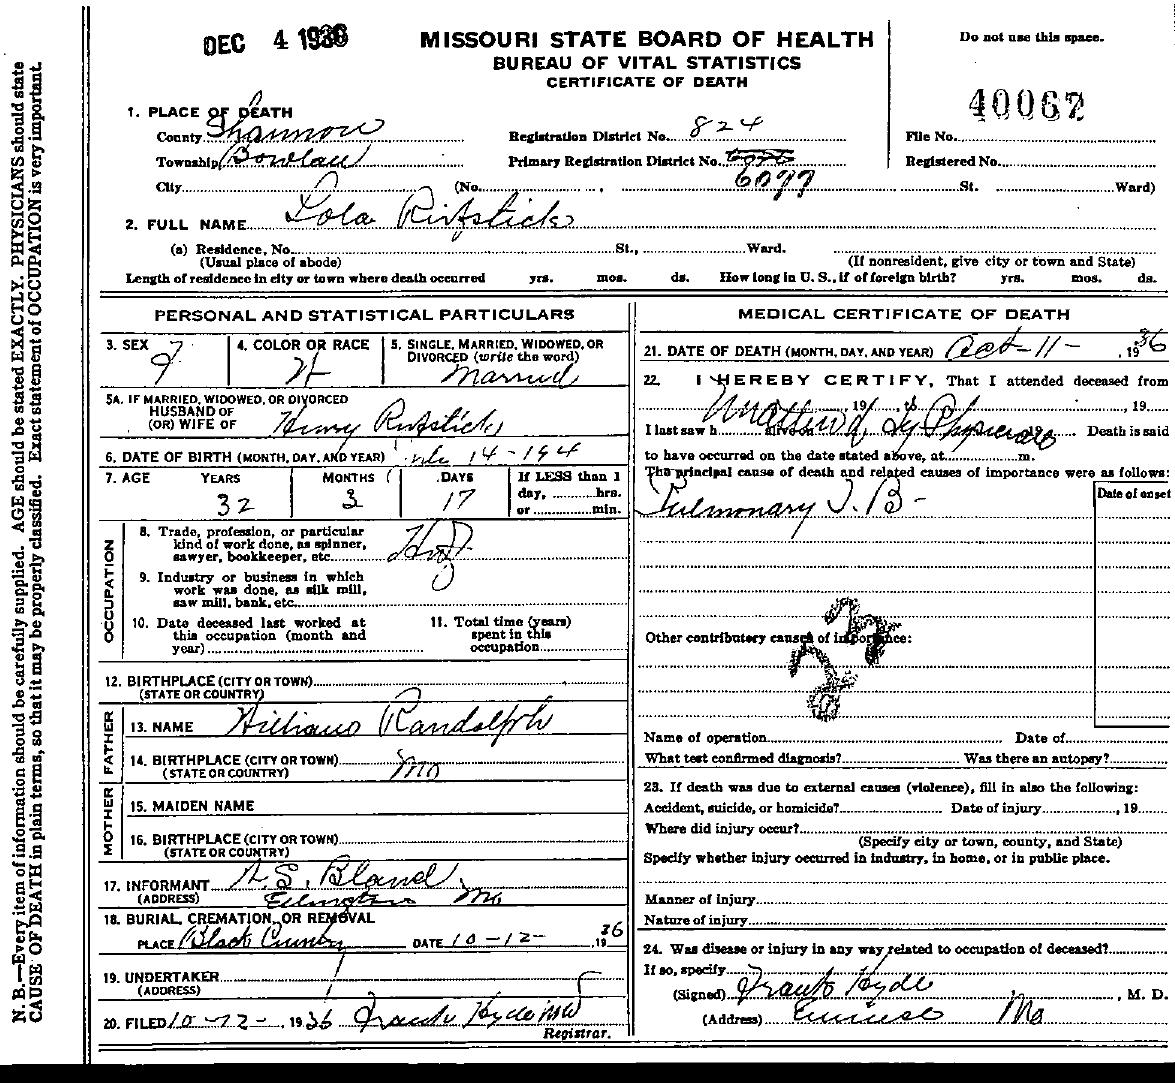 DEC 4 1936
MISSOURI STATE BOARD OF HEALTH
BUREAU OF VITAL STATISTICS
CERTIFICATE OF DEATH
Do not use this space.
40067
1. PLACE OF DEATH
County Shannon
Township
City (No. , St. Ward)
Registration District No. 824
Primary Registration District No. 6077
File No.
Registered No.
2. FULL NAME Lola
(a) Residence, No. St., Ward.
(Usual place of abode) (If nonresident, give city or town and State)
Length of residence in city or town where death occurred yrs. mos. ds. How long in U. S., if of foreign birth? yrs. mos. ds.
PERSONAL AND STATISTICAL PARTICULARS
3. SEX F
4. COLOR OR RACE W
5. SINGLE, MARRIED, WIDOWED, OR DIVORCED (write the word)
Married
5A. IF MARRIED, WIDOWED, OR DIVORCED
HUSBAND OF
(OR) WIFE OF Henry
6. DATE OF BIRTH (MONTH, DAY, AND YEAR) 14-194
7. AGE YEARS MONTHS DAYS If LESS than 1
day, hrs.
or min.
32 3 17
OCCUPATION
8. Trade, profession, or particular
kind of work done, as spinner,
sawyer, bookkeeper, etc.
9. Industry or business in which
work was done, as silk mill,
saw mill, bank, etc.
10. Date deceased last worked at
this occupation (month and
year)
11. Total time (years)
spent in this
occupation
12. BIRTHPLACE (CITY OR TOWN)
(STATE OR COUNTRY)
FATHER
13. NAME William Randolph
14. BIRTHPLACE (CITY OR TOWN)
(STATE OR COUNTRY) Mo
MOTHER
15. MAIDEN NAME
16. BIRTHPLACE (CITY OR TOWN)
(STATE OR COUNTRY)
17. INFORMANT A.S. Bland
(ADDRESS) Ellington Mo
18. BURIAL, CREMATION, OR REMOVAL
PLACE Black DATE 10-12- , 1936
19. UNDERTAKER
(ADDRESS)
20. FILED 10-12-, 1936 Frank Hyde MD
Registrar.
MEDICAL CERTIFICATE OF DEATH
21. DATE OF DEATH (MONTH, DAY, AND YEAR) Oct-11- , 1936
22. I HEREBY CERTIFY, That I attended deceased from
, 19 to , 19
Unattended by Physician
I last saw h alive on , 19 Death is said
to have occurred on the date stated above, at m.
The principal cause of death and related causes of importance were as follows:
Date of onset
Pulmonary T. B-
Other contributory causes of importance:
Name of operation Date of
What test confirmed diagnosis? Was there an autopsy?
23. If death was due to external causes (violence), fill in also the following:
Accident, suicide, or homicide? Date of injury , 19
Where did injury occur?
(Specify city or town, county, and State)
Specify whether injury occurred in industry, in home, or in public place.
Manner of injury
Nature of injury
24. Was disease or injury in any way related to occupation of deceased?
If so, specify
(Signed) Frank Hyde , M. D.
(Address) Eminence Mo
N. B.—Every item of information should be carefully supplied. AGE should be stated EXACTLY. PHYSICIANS should state
CAUSE OF DEATH in plain terms, so that it may be properly classified. Exact statement of OCCUPATION is very important.